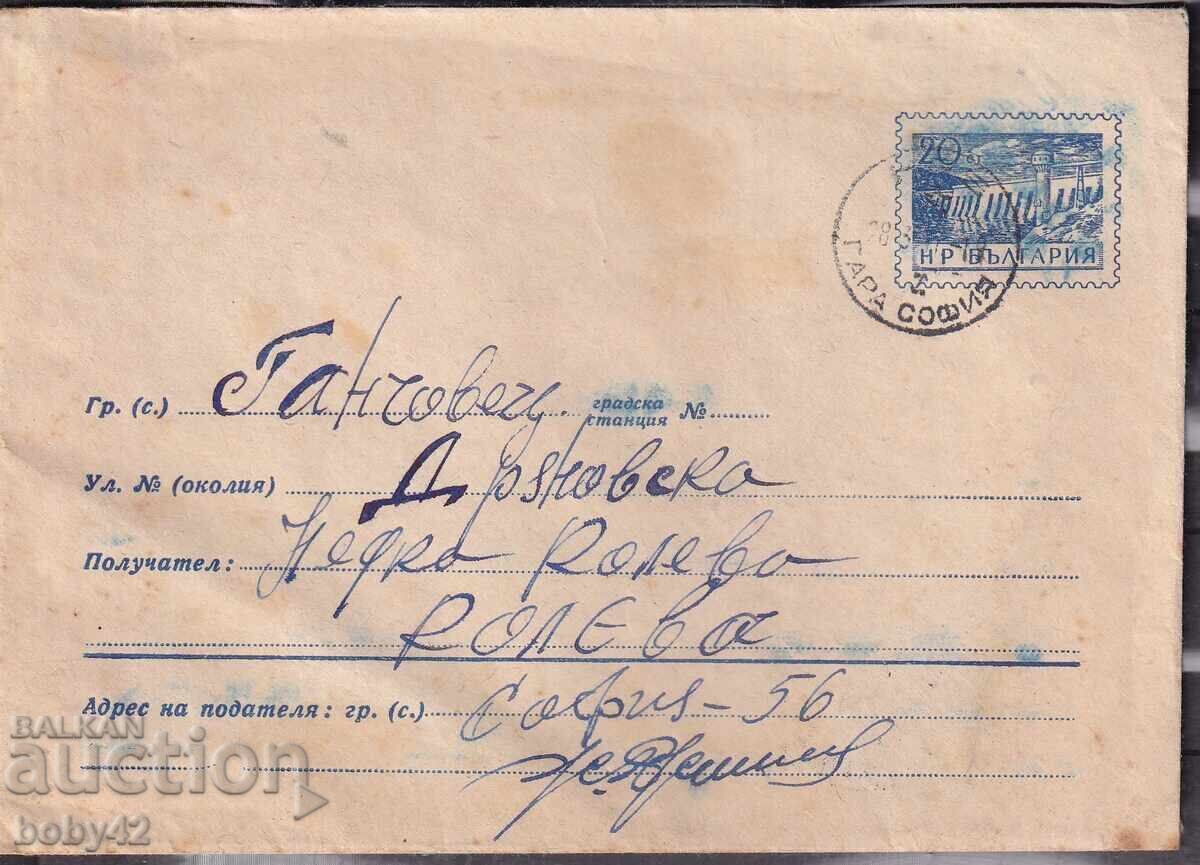 20 ст.
НР БЪЛГАРИЯ
ГАРА СОФИЯ
Гр. (с.) Ганчовец градска станция №
Ул. № (околия) Дряновска
Получател: Недка Колева
КОЛЕВА
Адрес на подателя: гр. (с.) София-56
BALKAN
auction
boby42